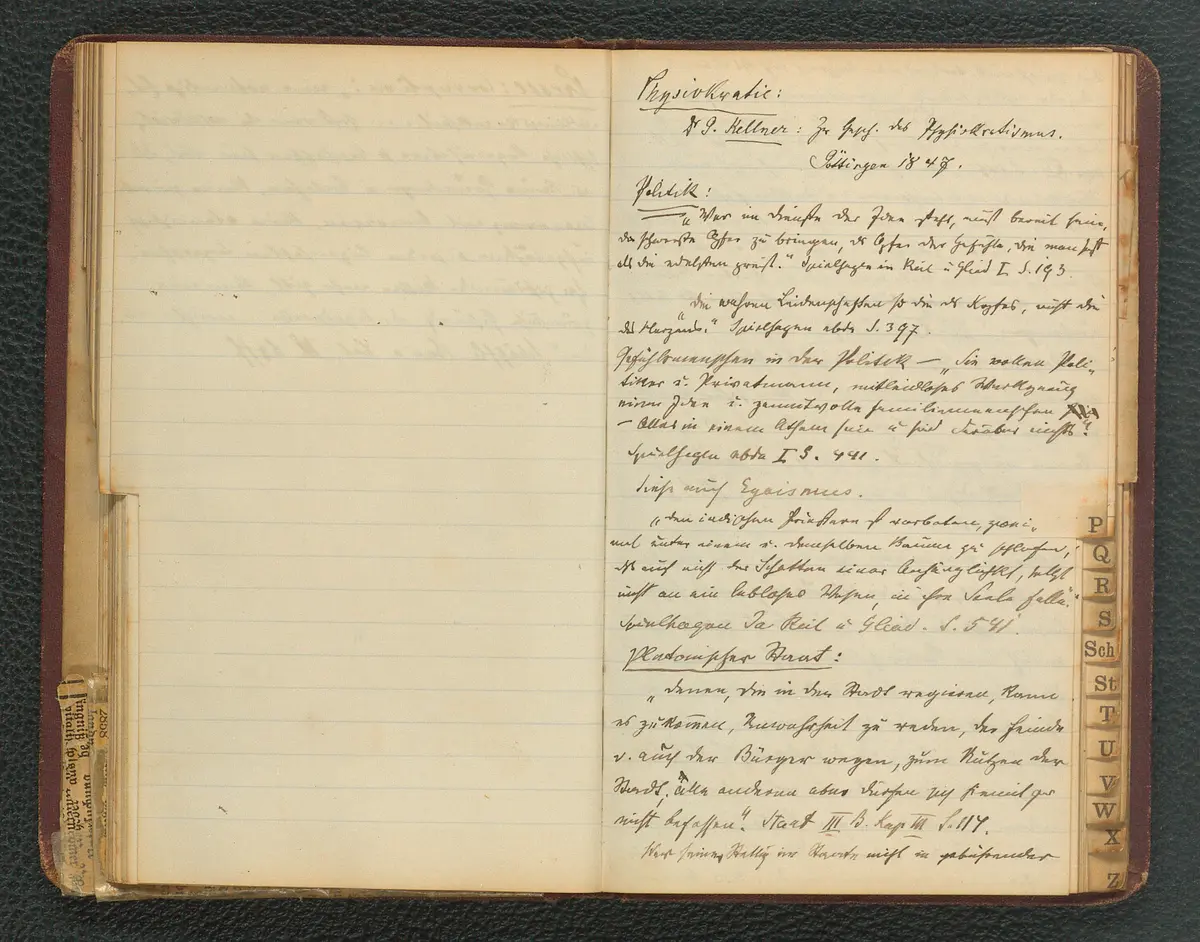 Physiokratie:
Dr G. Kellner: Zur Gesch. des Physiokratismus.
Göttingen 1847.
Politik:
„Wer im Dienste der Idee steht, muß bereit sein,
das schwerste Opfer zu bringen, das Opfer der Gefühle, die man sonst
als die edelsten preist." Spielhagen in Reih u Glied I. S. 193.
„Die wahren Leidenschaften sind die des Kopfes, nicht die
des Herzens." Spielhagen ebda S. 397.
Gefühlsmenschen in der Politik — „Sie wollen Poli-
tiker u. Privatmann, mitleidloses Werkzeug
einer Idee u. gemütvolle Familienmenschen
— Alles in einem Athem sein u sind darüber nichts".
Spielhagen ebda I S. 441.
Siehe auch Egoismus.
„Den indischen Priestern ist verboten, zwei-
mal unter einem u. demselben Baume zu schlafen,
daß auch nicht der Schatten einer Anhänglichkt, selbst
nicht an ein lebloses Wesen, in ihre Seele falle."
Spielhagen In Reih u Glied. S. 541.
Platonischer Staat:
„Denen, die in der Stadt regieren, kann
es zukommen, Unwahrheit zu reden, der Feinde
o. auch der Bürger wegen, zum Nutzen der
Stadt, alle anderen aber dürfen sich hiemit gar
nicht befassen". Staat III B. Kap III S. 117.
Wer seiner Stellg im Staate nicht in gebührender
P
Q
R
S
Sch
St
T
U
V
W
X
Z
2898